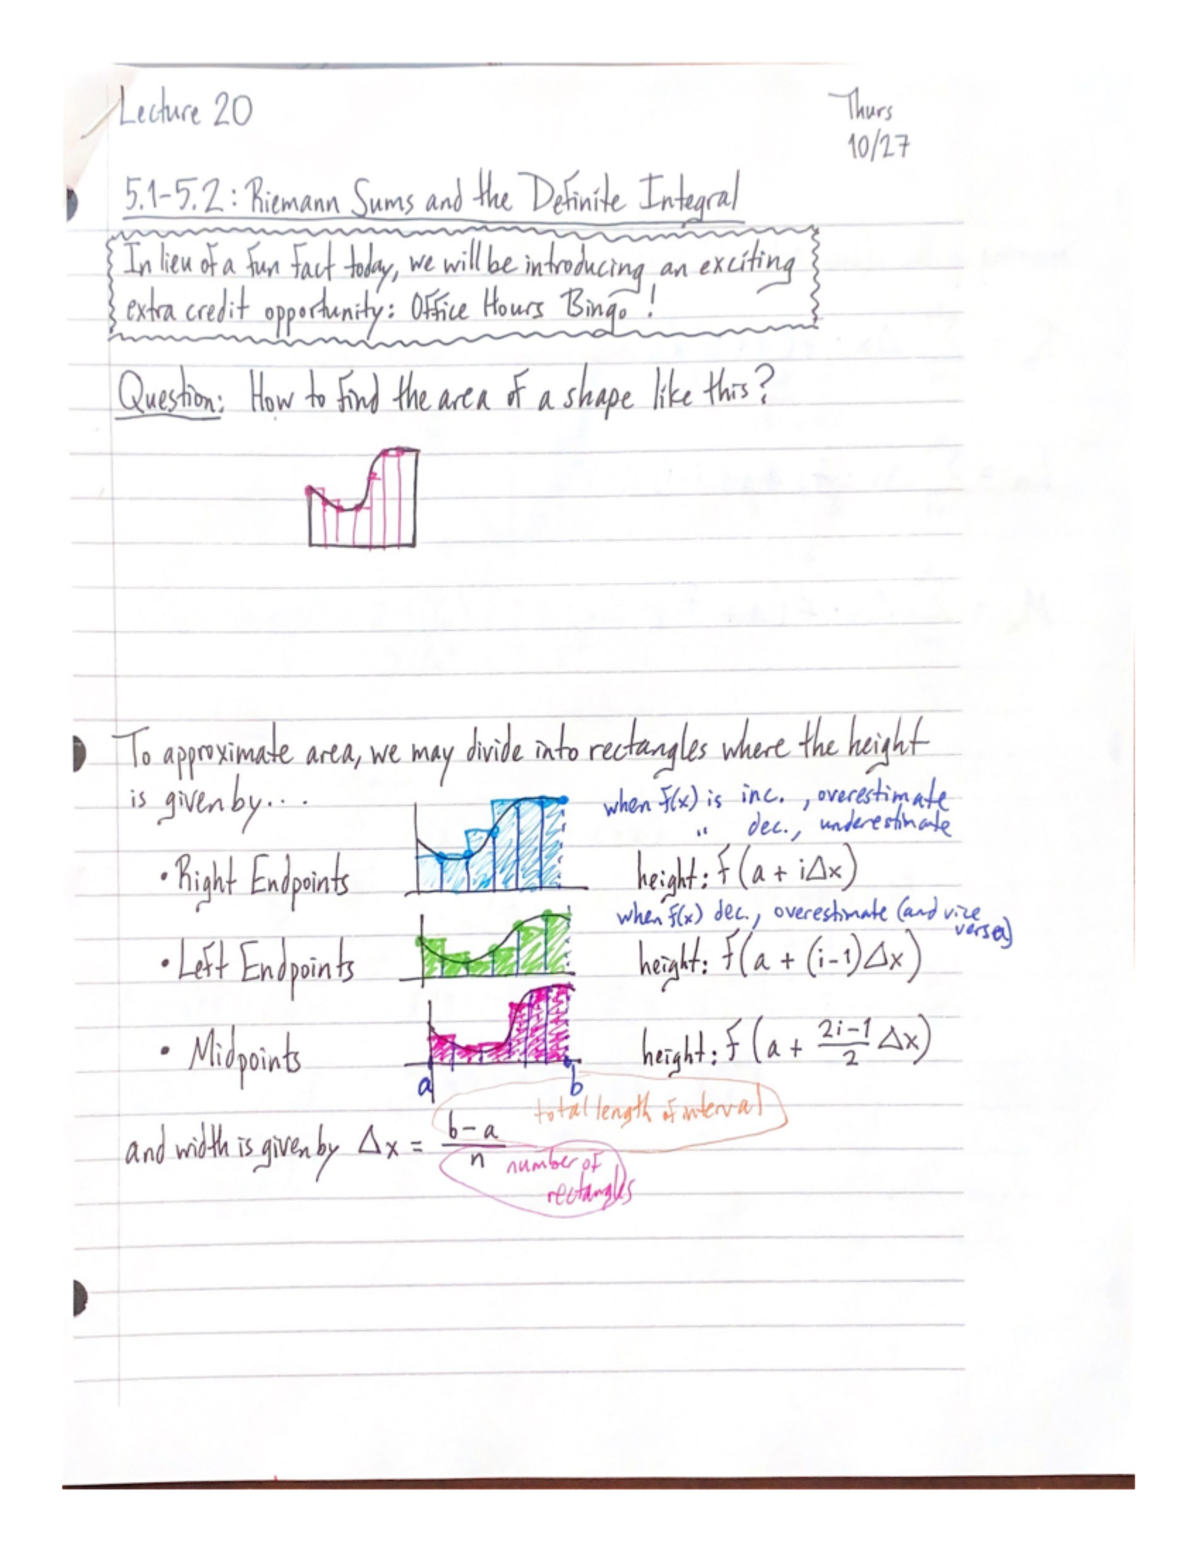 Lecture 20
Thurs
10/27
5.1-5.2: Riemann Sums and the Definite Integral
In lieu of a fun fact today, we will be introducing an exciting
extra credit opportunity: Office Hours Bingo!
Question: How to find the area of a shape like this?
To approximate area, we may divide into rectangles where the height
is given by...
when f(x) is inc., overestimate
" dec., underestimate
• Right Endpoints
height: f(a + iΔx)
when f(x) dec., overestimate (and vice
versa)
• Left Endpoints
height: f(a + (i-1)Δx)
• Midpoints
height: f(a + (2i-1)/2 Δx)
a b
total length of interval
and width is given by Δx = (b-a)/n
number of
rectangles